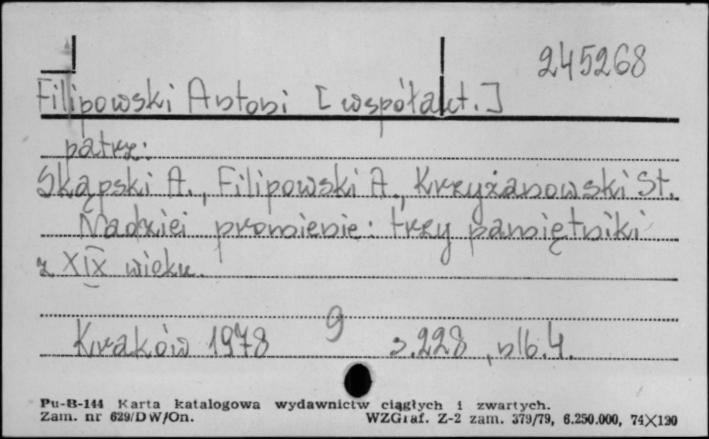 245268
Filipowski Antoni [współaut.]
patrz:
Skąpski A., Filipowski A., Krzyżanowski St.
Nadziei promienie: trzy pamiętniki
z XIX wieku.
9
Kraków 1978 s. 228, nlb. 4.
Pu-B-144 Karta katalogowa wydawnictw ciągłych i zwartych.
Zam. nr 629/DW/On. WZGraf. Z-2 zam. 379/79, 6.250.000, 74X120